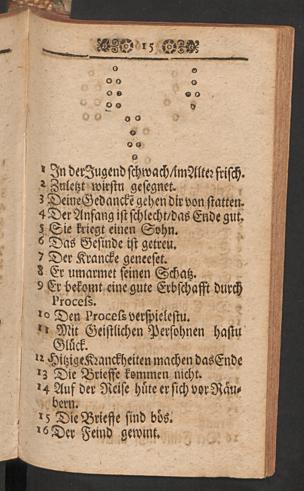 15
1 In der Jugend schwach/im Alter frisch.
2 Zuletzt wirstu gesegnet.
3 Deine Gedancke gehen dir von statten.
4 Der Anfang ist schlecht/das Ende gut.
5 Sie kriegt einen Sohn.
6 Das Gesinde ist getreu.
7 Der Krancke geneeset.
8 Er umarmet seinen Schatz.
9 Er bekomt eine gute Erbschafft durch
Process.
10 Den Process verspielestu.
11 Mit Geistlichen Persohnen hastu
Glück.
12 Hitzige Kranckheiten machen das Ende
13 Die Brieffe kommen nicht.
14 Auf der Reise hüte er sich vor Räu-
bern.
15 Die Brieffe sind bös.
16 Der Feind gewint.